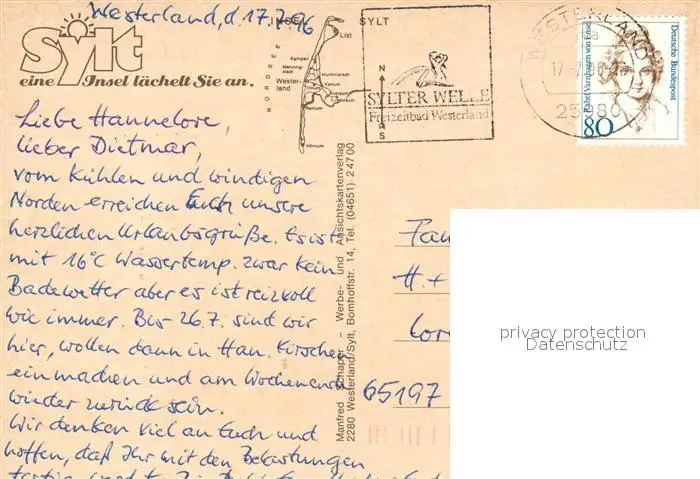 Westerland, d. 17.7.96
Sylt
eine Insel lächelt Sie an.
INSEL SYLT
NORDSEE
List
Kampen
Wenning-
stadt
Wester-
land
Munkmarsch
Keitum
Hörnum
N
S
SYLTER WELLE
Freizeitbad Westerland
WESTERLAND
17.-7.
25980
Deutsche Bundespost
Rahel Varnhagen von Ense
80
Liebe Hannelore,
lieber Dietmar,
vom kühlen und windigen
Norden erreichen Euch unsere
herzlichen Urlaubsgrüße. Es ist
mit 16°C Wassertemp. zwar kein
Badewetter aber es ist reizvoll
wie immer. Bis 26.7. sind wir
hier, wollen dann in Han. Kirschen
einmachen und am Wochenende
wieder zurück sein.
Wir denken viel an Euch und
hoffen, daß Ihr mit den Belastungen
Manfred Schaper - Werbe- und Ansichtskartenverlag
2280 Westerland/Sylt, Bomhoffstr. 14, Tel. (04651) 2 47 00
Fam
H. +
65197
privacy protection
Datenschutz